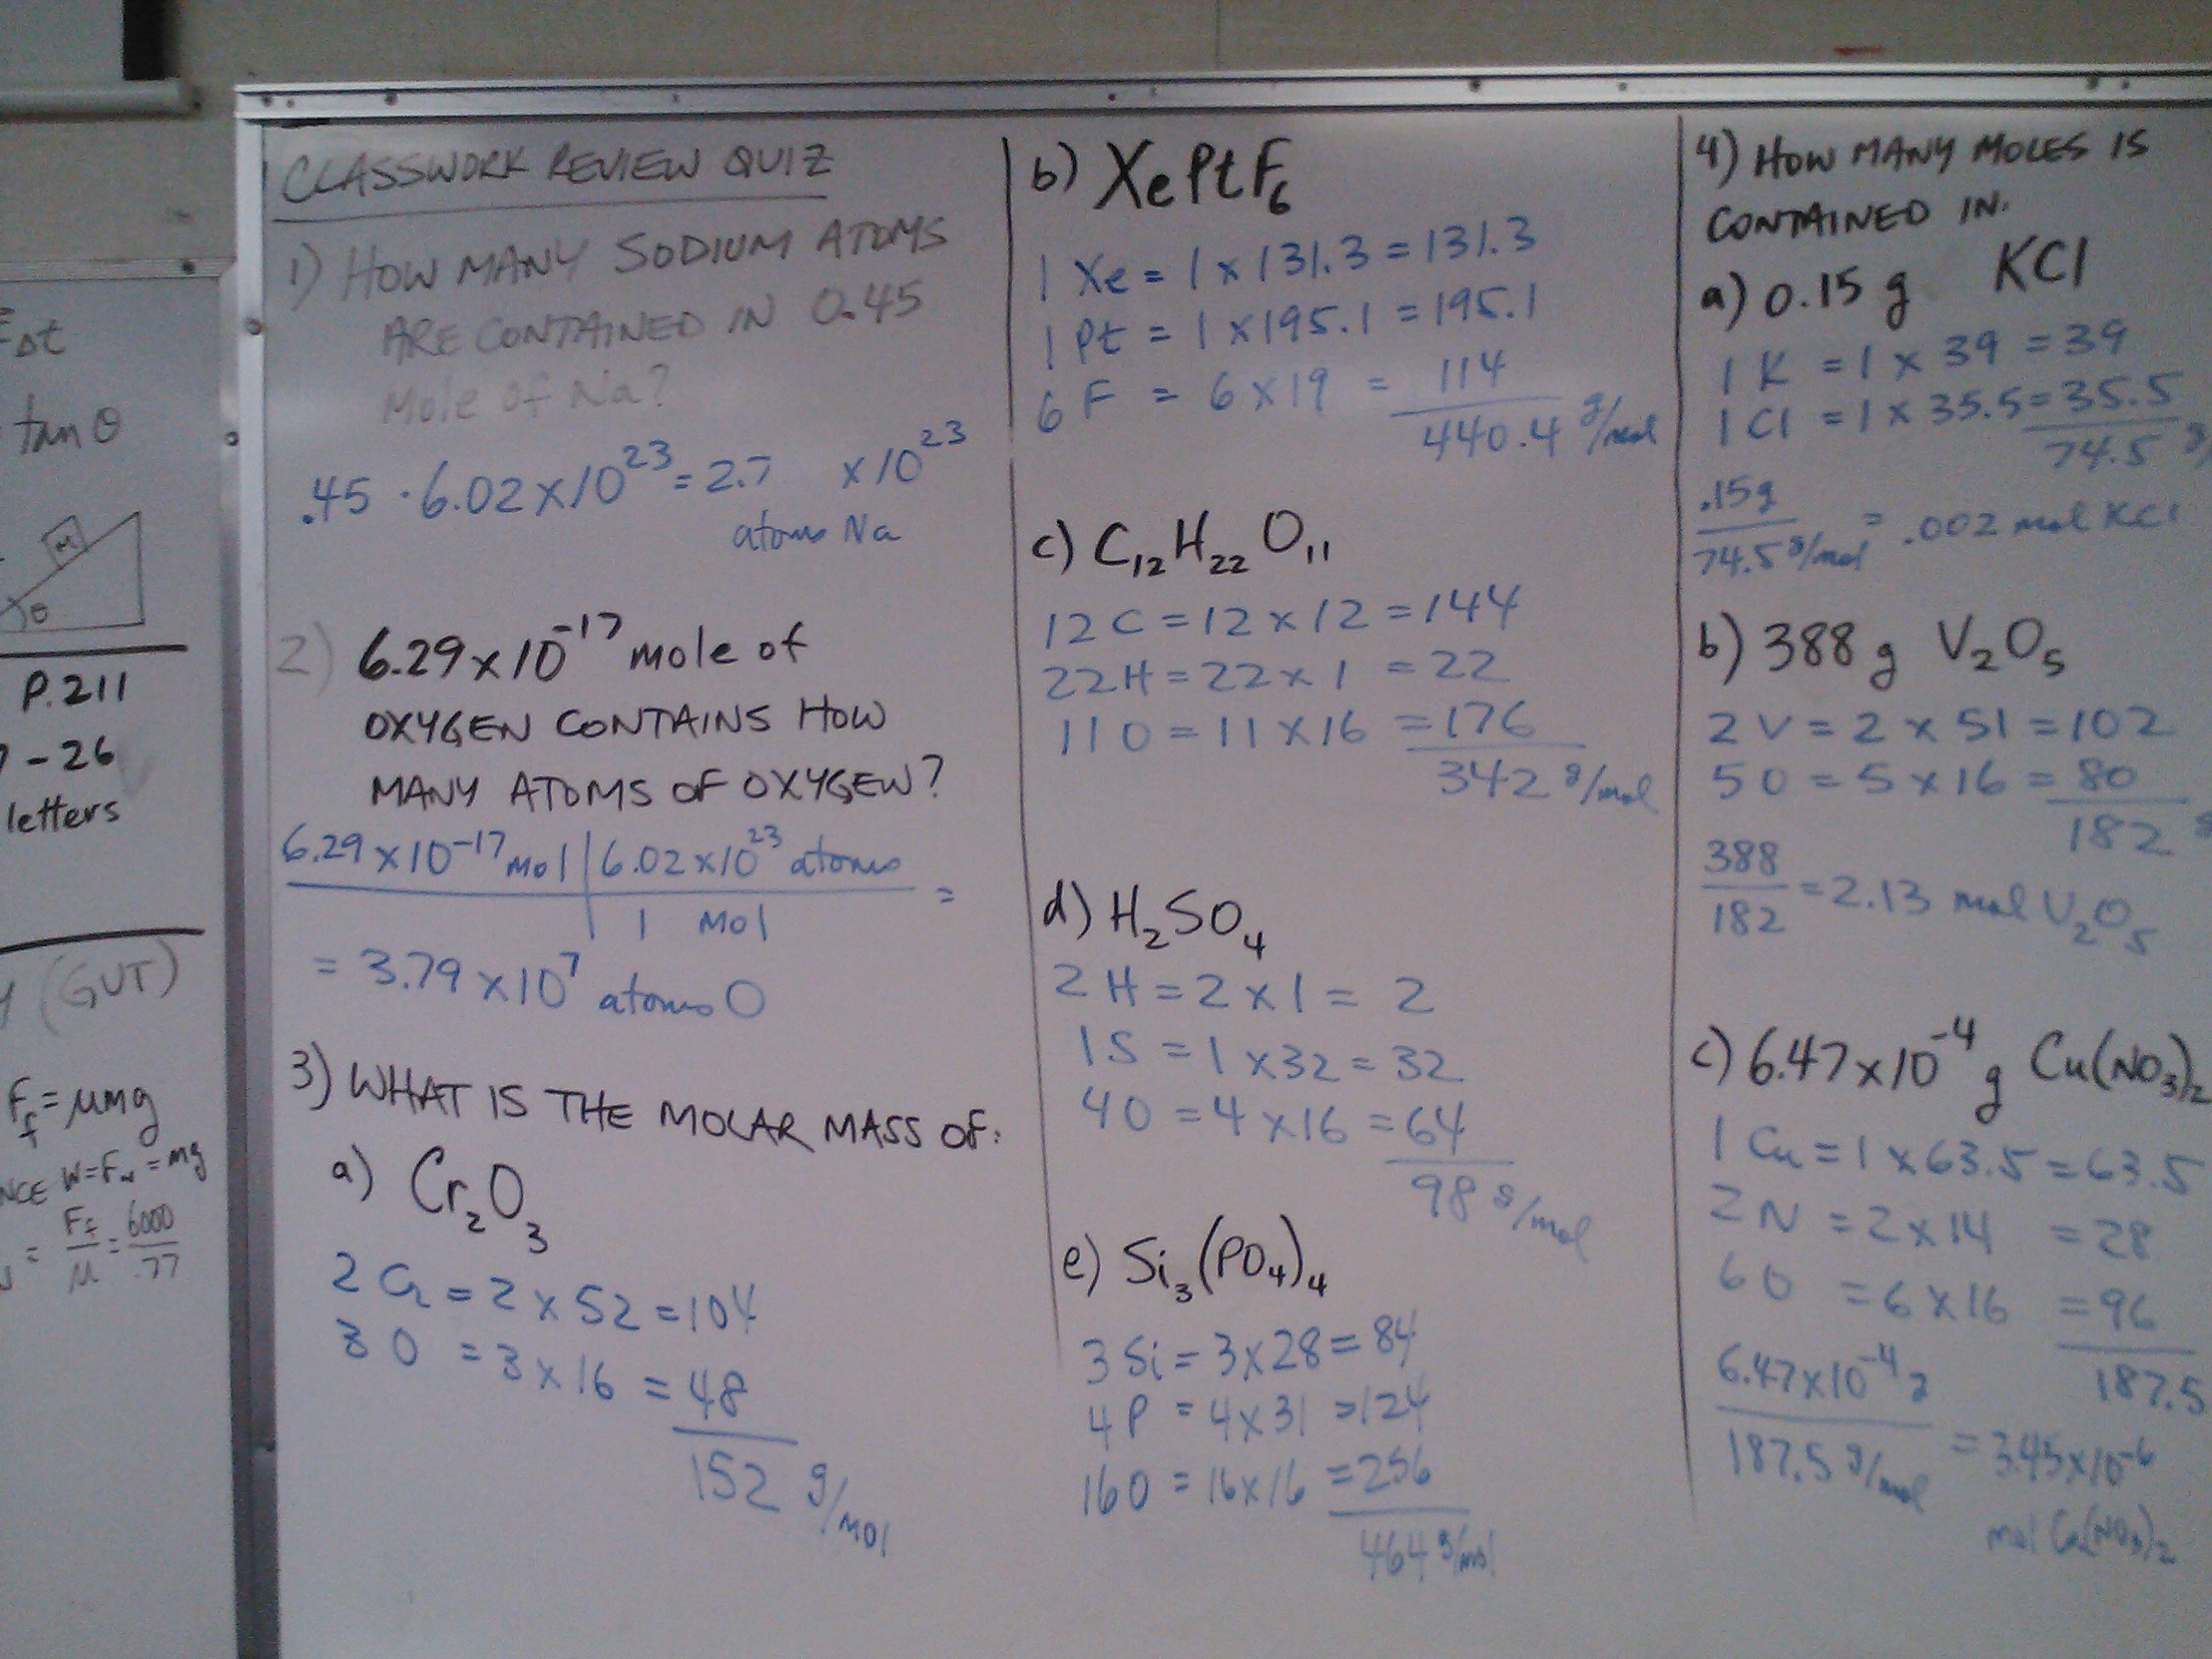 Δt
tan θ
M
θ
P.211
-26
letters
(GUT)
F_f = μmg
W=F_N=mg
= F_f/μ = 6000/.77
CLASSWORK REVIEW QUIZ
1) HOW MANY SODIUM ATOMS
ARE CONTAINED IN 0.45
Mole of Na?
.45 · 6.02 x 10²³ = 2.7 x 10²³
atoms Na
2) 6.29 x 10⁻¹⁷ mole of
OXYGEN CONTAINS HOW
MANY ATOMS OF OXYGEN?
6.29 x 10⁻¹⁷ mol | 6.02 x 10²³ atoms =
| 1 mol
= 3.79 x 10⁷ atoms O
3) WHAT IS THE MOLAR MASS OF:
a) Cr₂O₃
2 Cr = 2 x 52 = 104
3 O = 3 x 16 = 48
152 g/mol
b) XePtF₆
1 Xe = 1 x 131.3 = 131.3
1 Pt = 1 x 195.1 = 195.1
6 F = 6 x 19 = 114
440.4 g/mol
c) C₁₂H₂₂O₁₁
12 C = 12 x 12 = 144
22 H = 22 x 1 = 22
11 O = 11 x 16 = 176
342 g/mol
d) H₂SO₄
2 H = 2 x 1 = 2
1 S = 1 x 32 = 32
4 O = 4 x 16 = 64
98 g/mol
e) Si₃(PO₄)₄
3 Si = 3 x 28 = 84
4 P = 4 x 31 = 124
16 O = 16 x 16 = 256
464 g/mol
4) HOW MANY MOLES IS
CONTAINED IN.
a) 0.15 g KCl
1 K = 1 x 39 = 39
1 Cl = 1 x 35.5 = 35.5
74.5 g/
.15g
74.5 g/mol = .002 mol KCl
b) 388 g V₂O₅
2 V = 2 x 51 = 102
5 O = 5 x 16 = 80
182 g
388
182 = 2.13 mol V₂O₅
c) 6.47 x 10⁻⁴ g Cu(NO₃)₂
1 Cu = 1 x 63.5 = 63.5
2 N = 2 x 14 = 28
6 O = 6 x 16 = 96
187.5
6.47 x 10⁻⁴ g
187.5 g/mol = 3.45 x 10⁻⁶
mol Cu(NO₃)₂